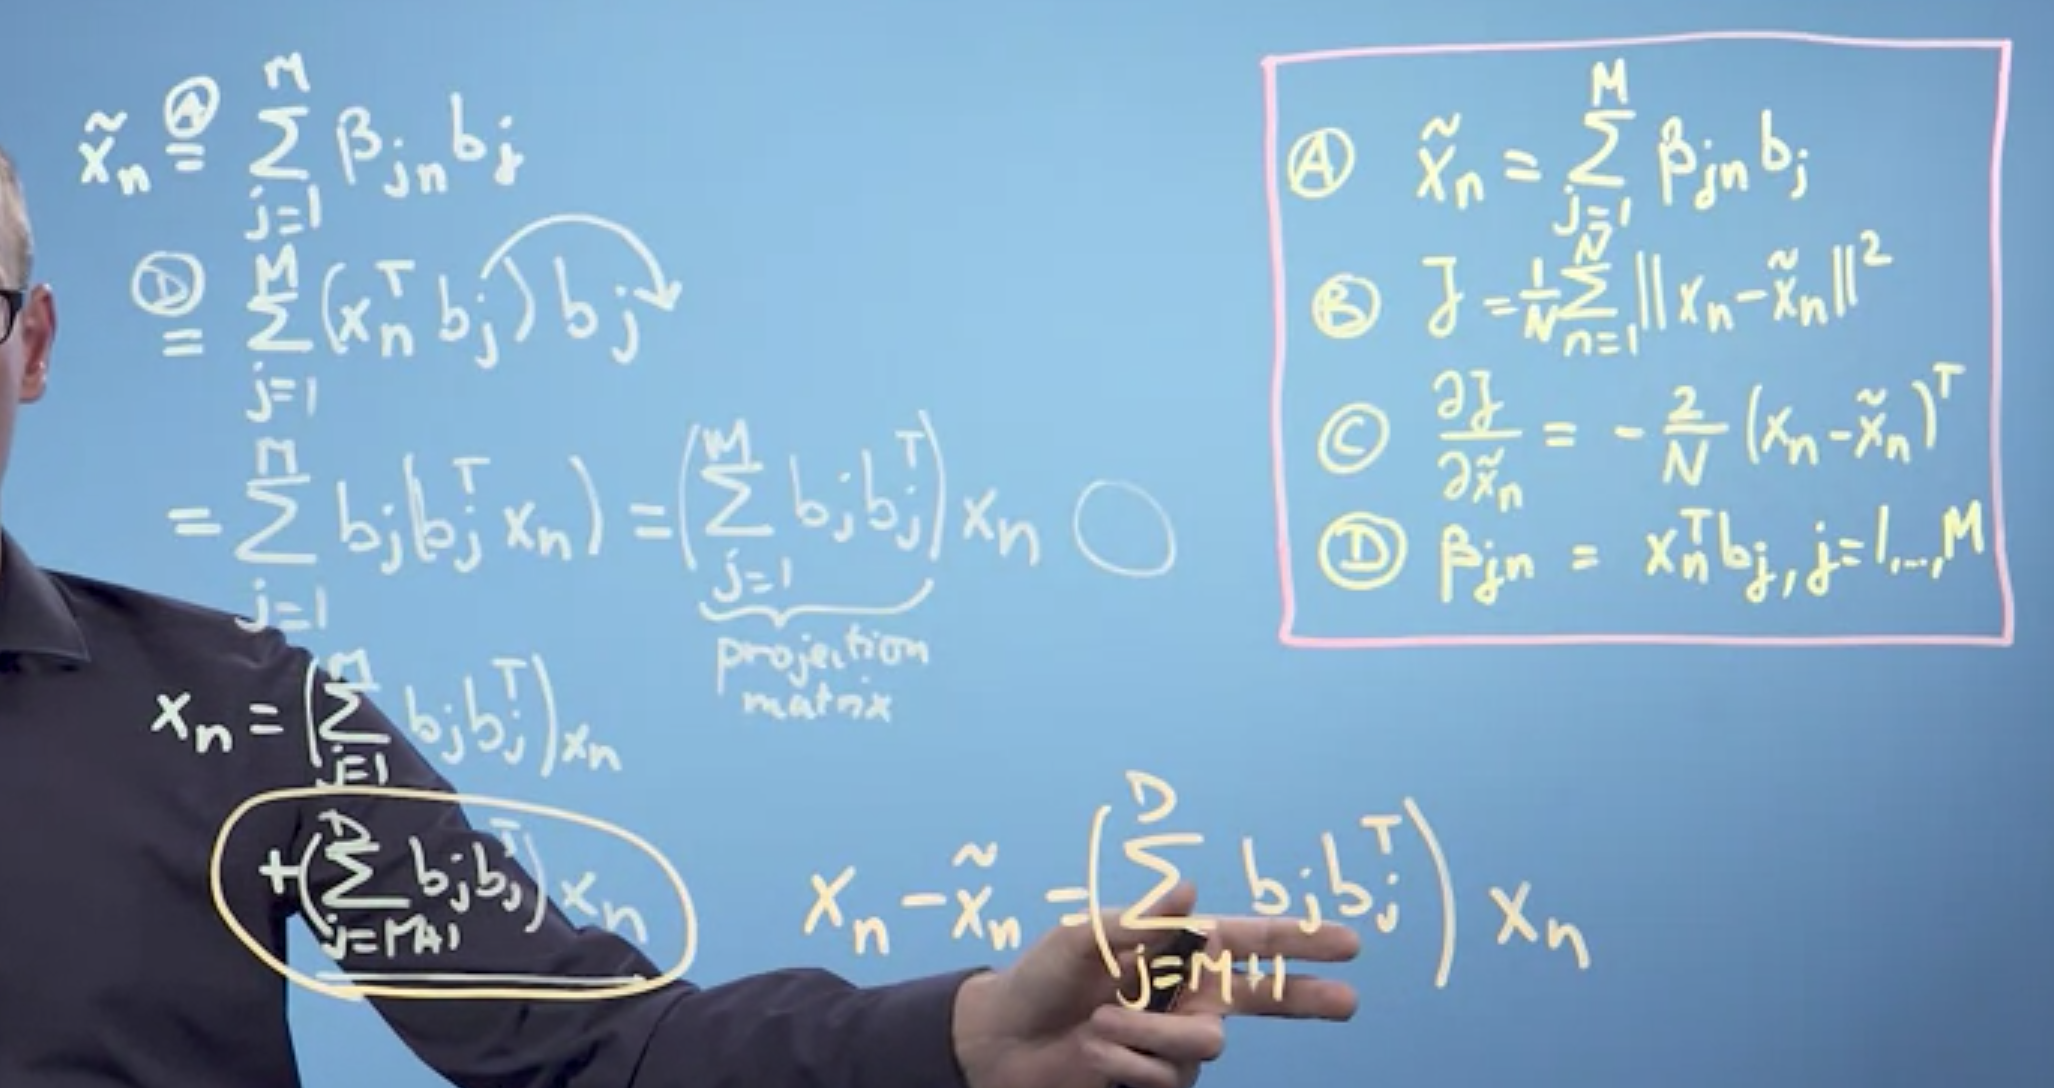 x̃ₙ =Ⓐ ∑_{j=1}^{M} β_{jn} b_j
Ⓓ = ∑_{j=1}^{M} (xₙᵀ b_j) b_j
= ∑_{j=1}^{M} b_j (b_jᵀ xₙ) = (∑_{j=1}^{M} b_j b_jᵀ) xₙ
projection
matrix
xₙ = (∑_{j=1}^{M} b_j b_jᵀ) xₙ
+ (∑_{j=M+1}^{D} b_j b_jᵀ) xₙ
xₙ - x̃ₙ = (∑_{j=M+1}^{D} b_j b_jᵀ) xₙ
Ⓐ x̃ₙ = ∑_{j=1}^{M} β_{jn} b_j
Ⓑ J = 1/N ∑_{n=1}^{N} ||xₙ - x̃ₙ||²
Ⓒ ∂J/∂x̃ₙ = - 2/N (xₙ - x̃ₙ)ᵀ
Ⓓ β_{jn} = xₙᵀ b_j, j=1,...,M